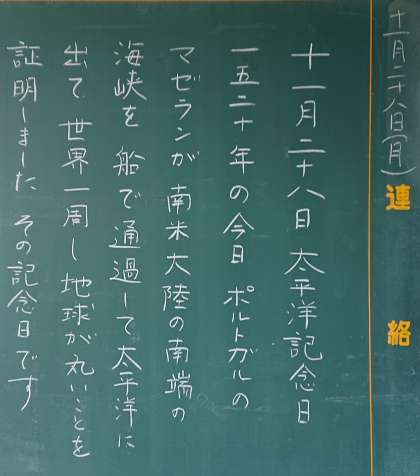 十一月二十八日(月)
連絡
十一月二十八日 太平洋記念日
一五二十年の今日 ポルトガルの
マゼランが南米大陸の南端の
海峡を船で通過して太平洋に
出て世界一周し地球が丸いことを
証明しました その記念日です